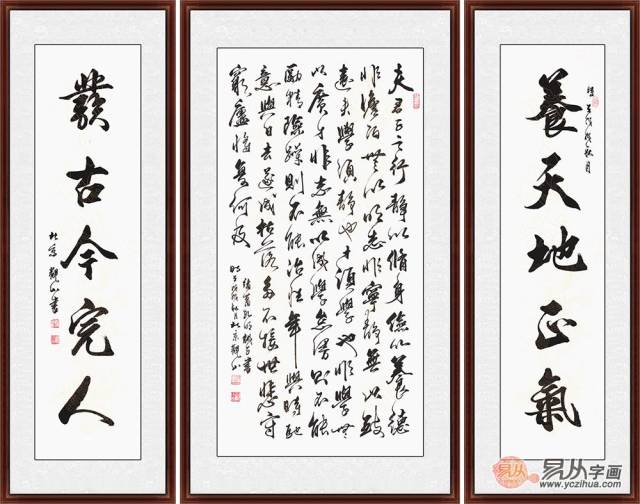 養天地正氣
戊戌秋月
夫君子之行靜以脩身儉以養德
非澹泊無以明志非寧靜無以致
遠夫學須靜也才須學也非學無
以廣才非志無以成學怠慢則不能
勵精險躁則不能冶性年與時馳
意與日去遂成枯落多不接世悲守
窮廬將復何及
諸葛孔明誡子書
戊戌秋月北京觀山
古今完人
北京觀山書
易从字画
www.yczihua.com